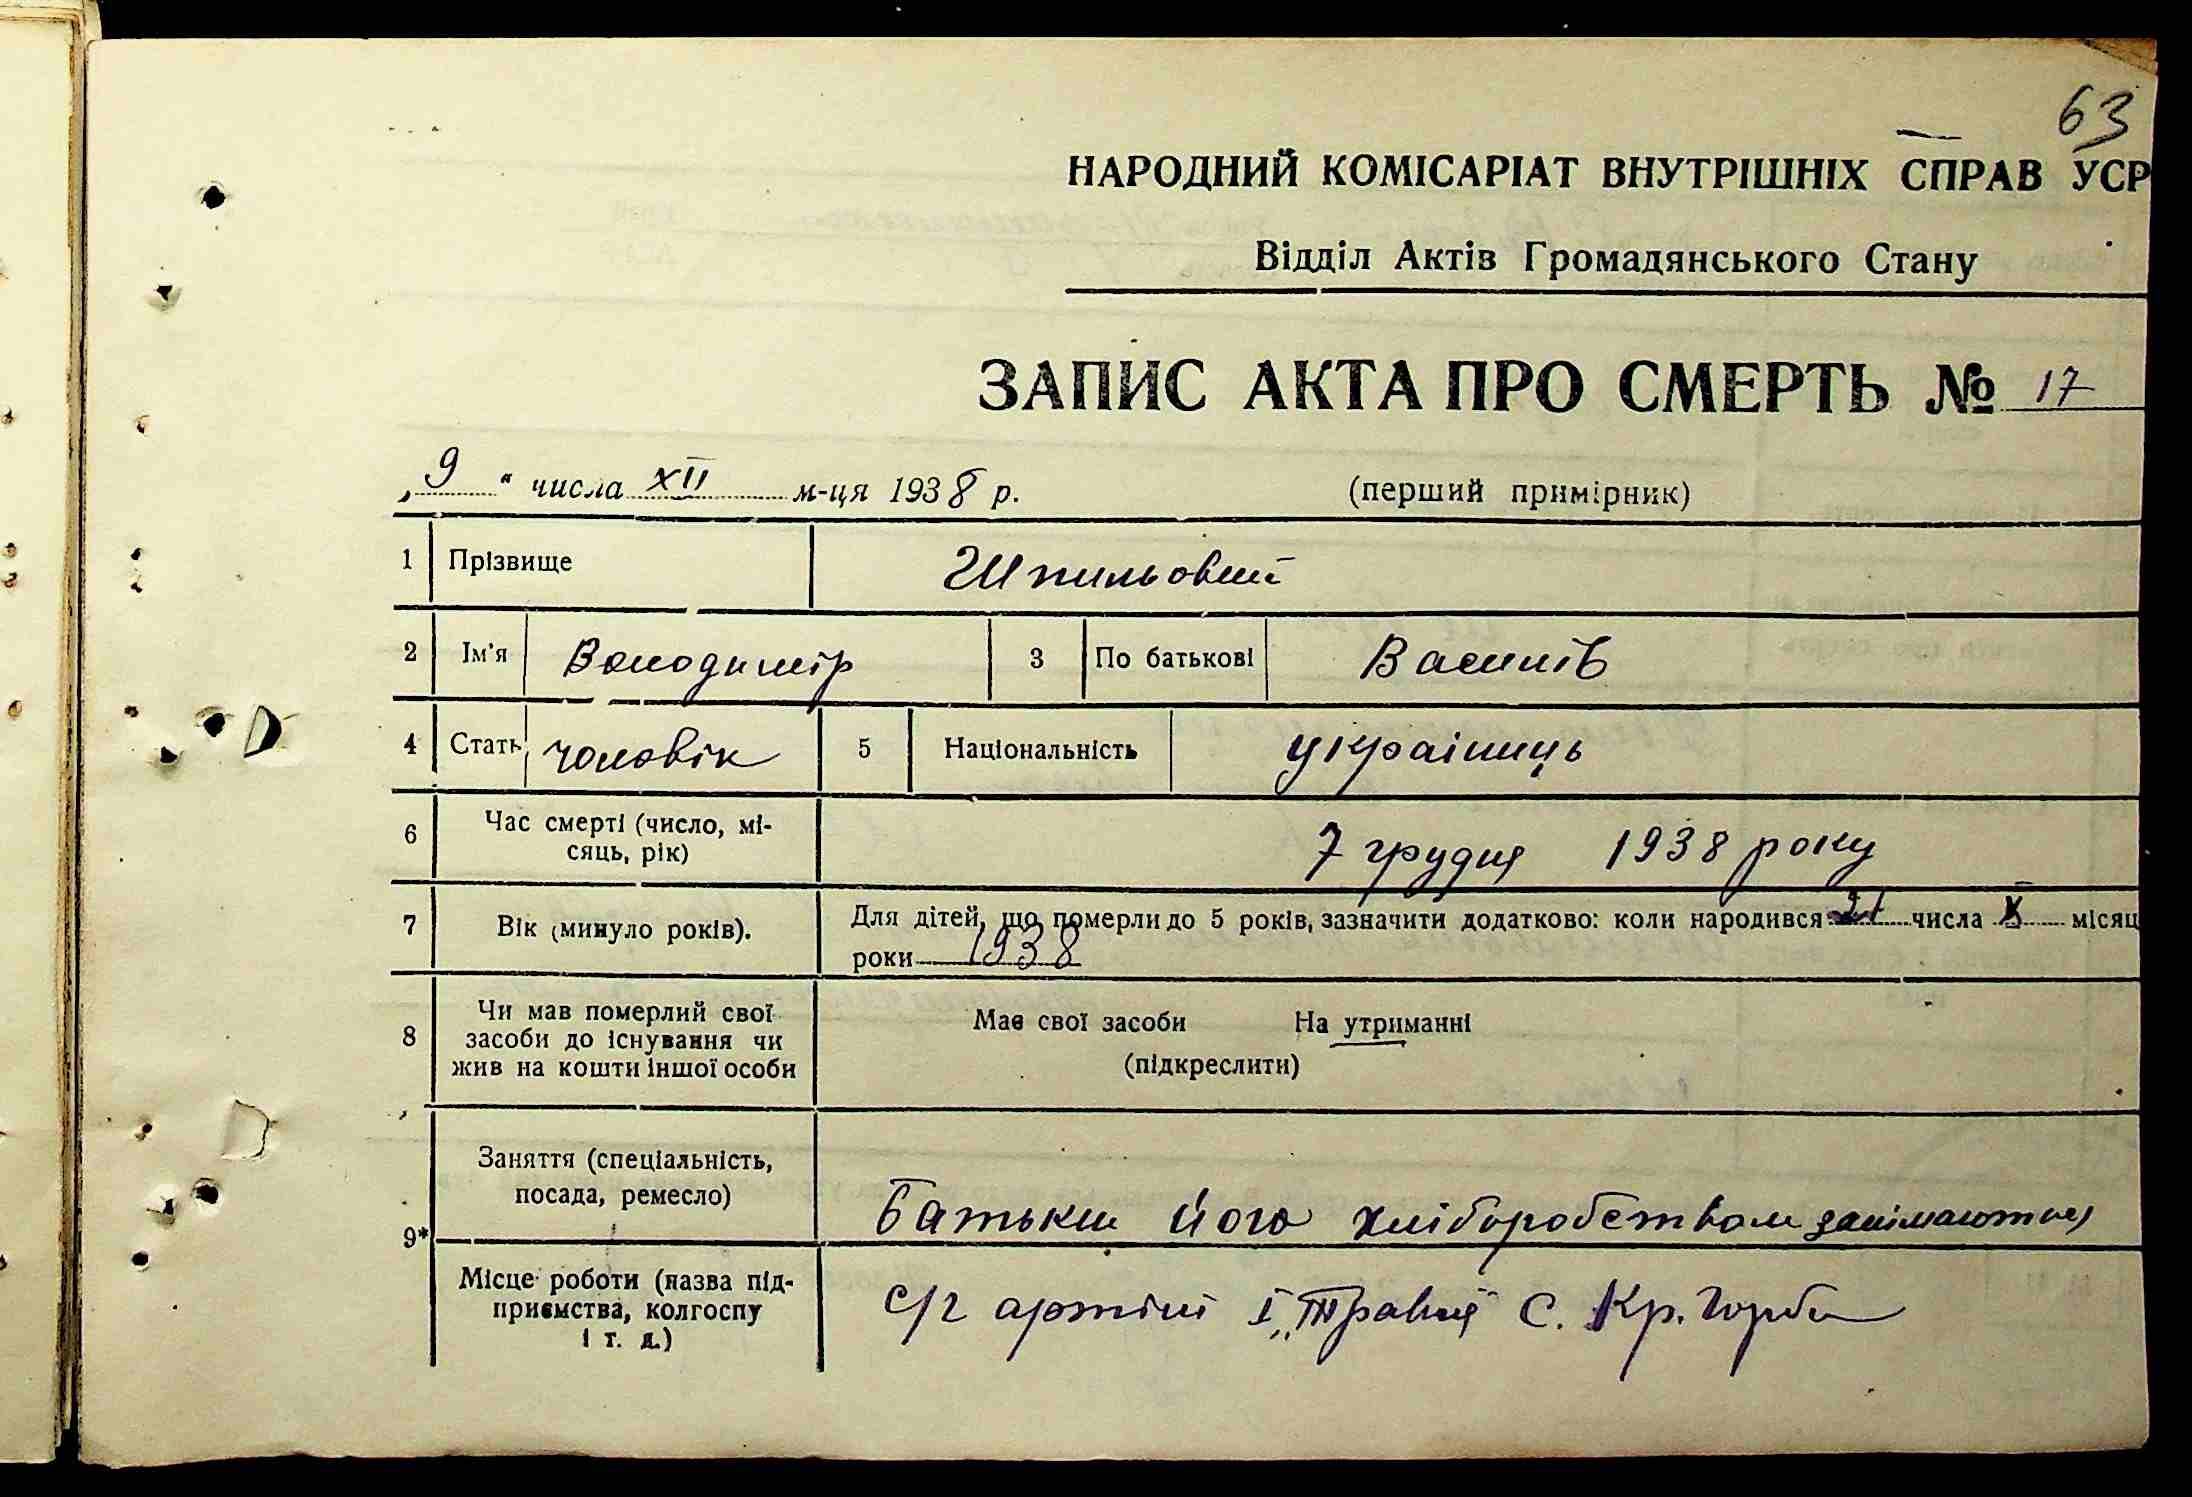 63
НАРОДНИЙ КОМІСАРІАТ ВНУТРІШНІХ СПРАВ УСР
Відділ Актів Громадянського Стану
ЗАПИС АКТА ПРО СМЕРТЬ № 17
„9“ числа XII м-ця 1938 р. (перший примірник)
1 Прізвище Шпильовий
2 Ім'я Володимір 3 По батькові Василів
4 Стать чоловік 5 Національність українець
6 Час смерті (число, мі-
сяць, рік) 7 грудня 1938 року
7 Вік (минуло років). Для дітей, що померли до 5 років, зазначити додатково: коли народився 21 числа X місяц
роки 1938
8 Чи мав померлий свої
засоби до існування чи
жив на кошти іншої особи
Має свої засоби На утриманні
(підкреслити)
9* Заняття (спеціальність,
посада, ремесло) Батьки його хліборобством занімаються
Місце роботи (назва під-
приємства, колгоспу
і т. д.)
с/г артіль І „Травня" С. Кр. Горби